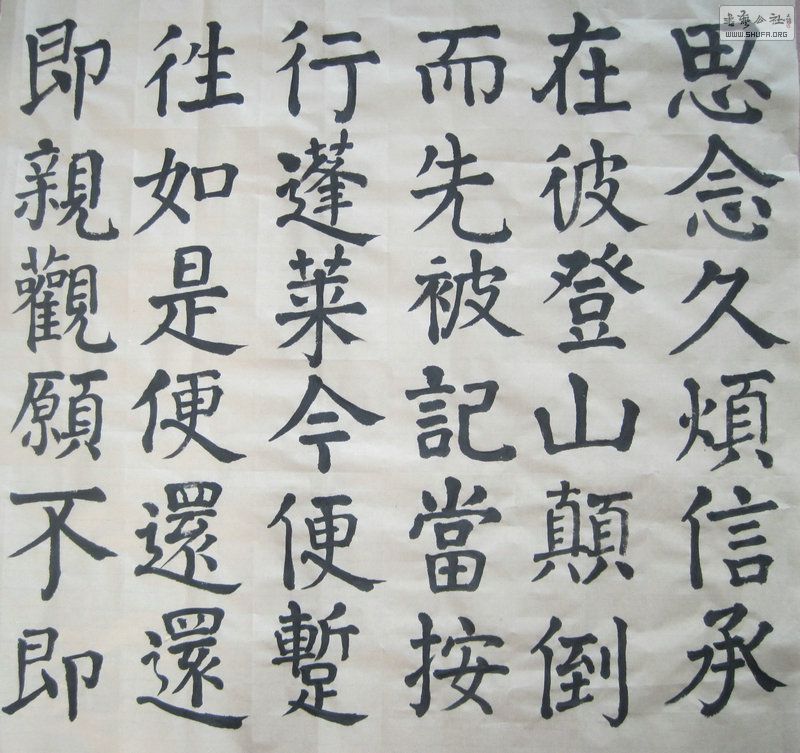 思念久煩信承
在彼登山顛倒
而先被記當按
行蓬萊今便蹔
徃如是便還還
即親觀願不即
書藝公社
WWW.SHUFA.ORG